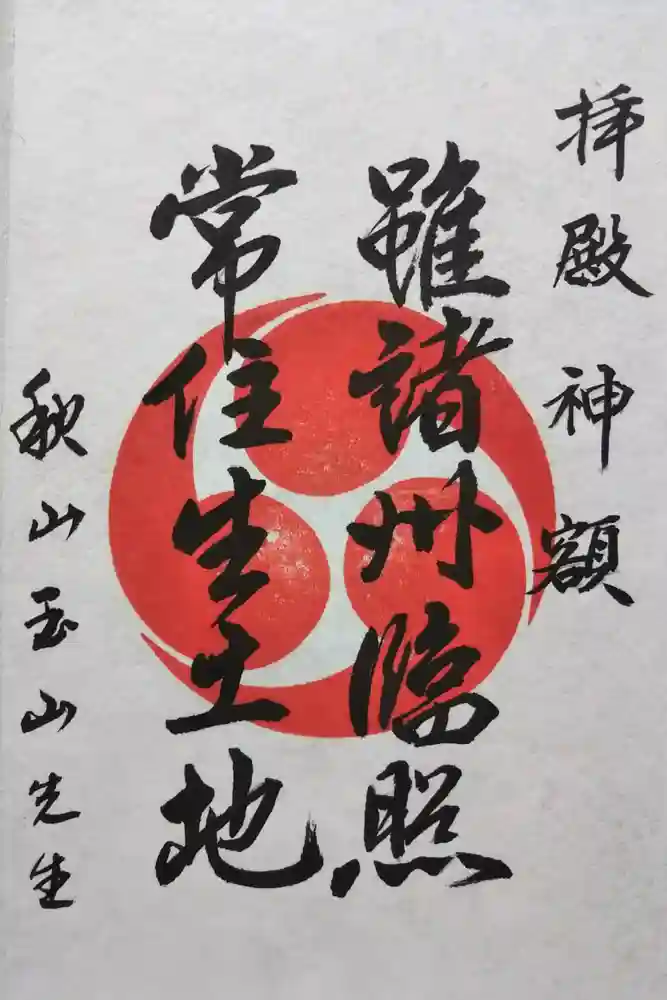 拝殿神額
雖諸州臨照
常住生土地
秋山玉山先生